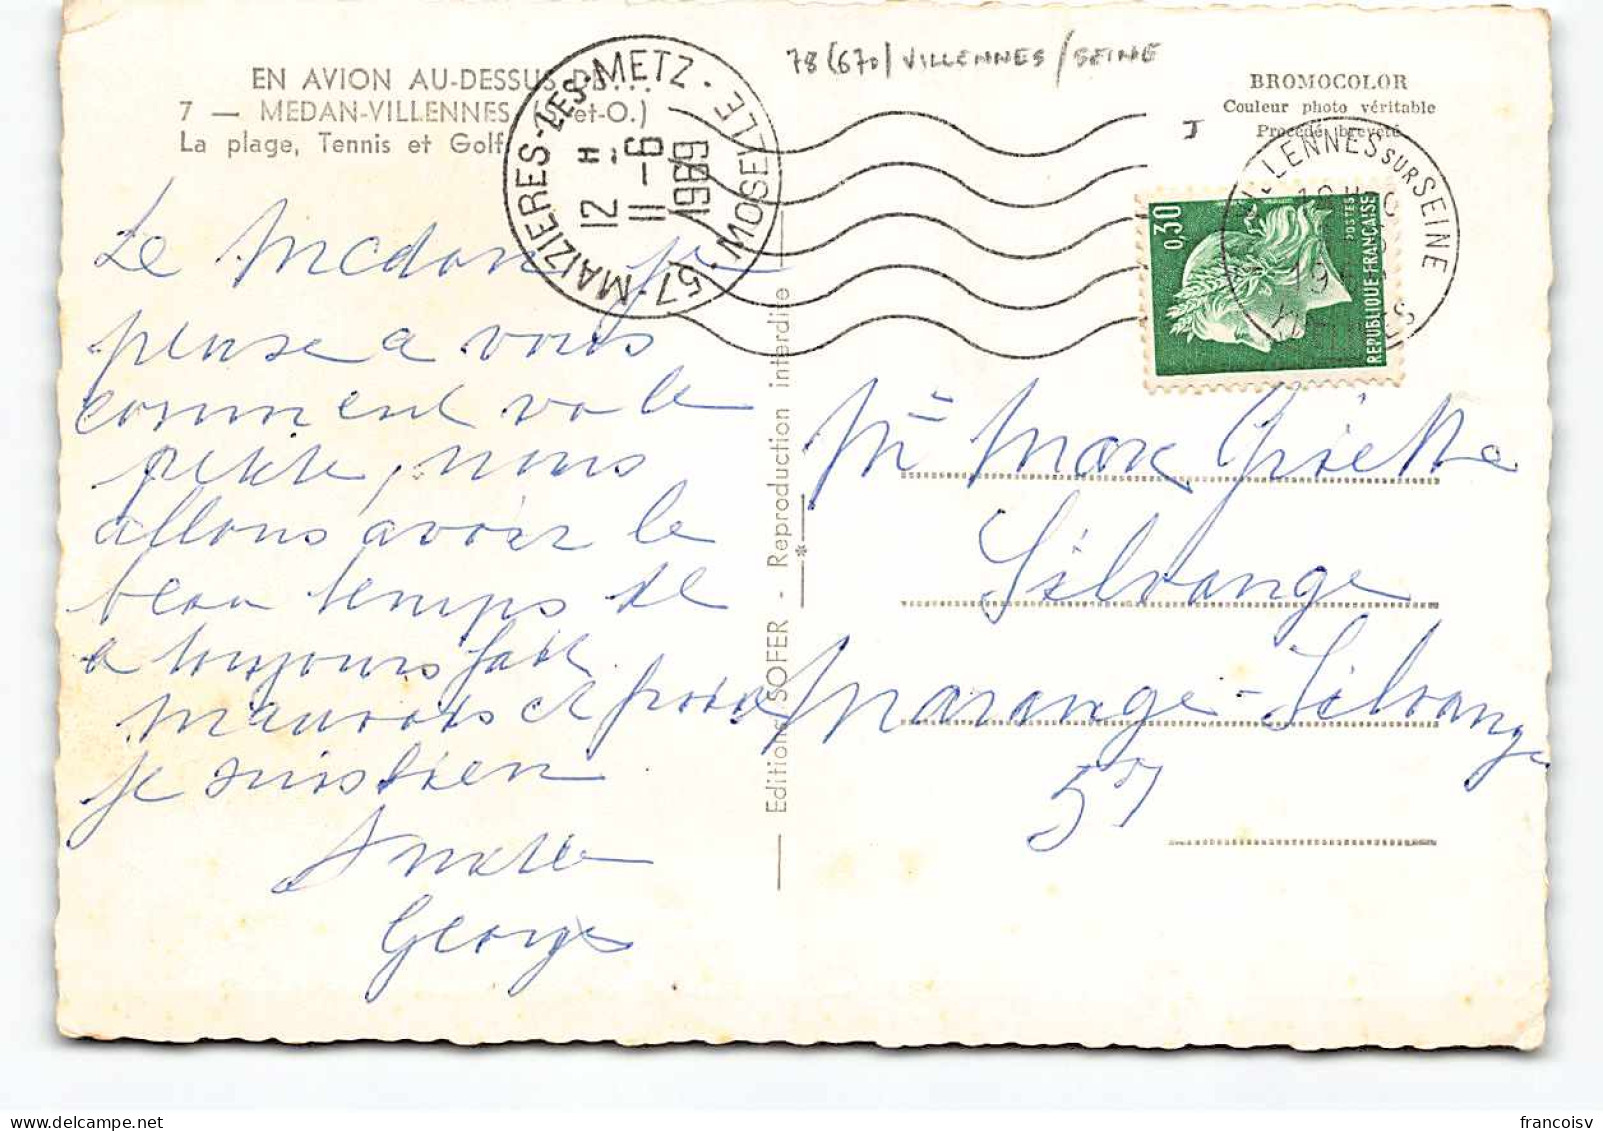 78 (670) VILLENNES / SEINE
EN AVION AU-DESSUS DE...
7 — MEDAN-VILLENNES (S-et-O.)
La plage, Tennis et Golf
BROMOCOLOR
Couleur photo véritable
Procédé breveté
57 MAIZIERES-LES-METZ - MOSELLE
12 H
11-6
1969
VILLENNES SUR SEINE
19
YVELINES
0,30
POSTES
REPUBLIQUE FRANÇAISE
Le Medan je
pense a vous
comment va le
petite, nous
allons avoir le
beau temps il
a toujours fait
mauvais et froid
je suis bien
Georges
Editions SOFER - Reproduction interdite
Mr Max
Silvange
Marange-Silvange
57
francoisv